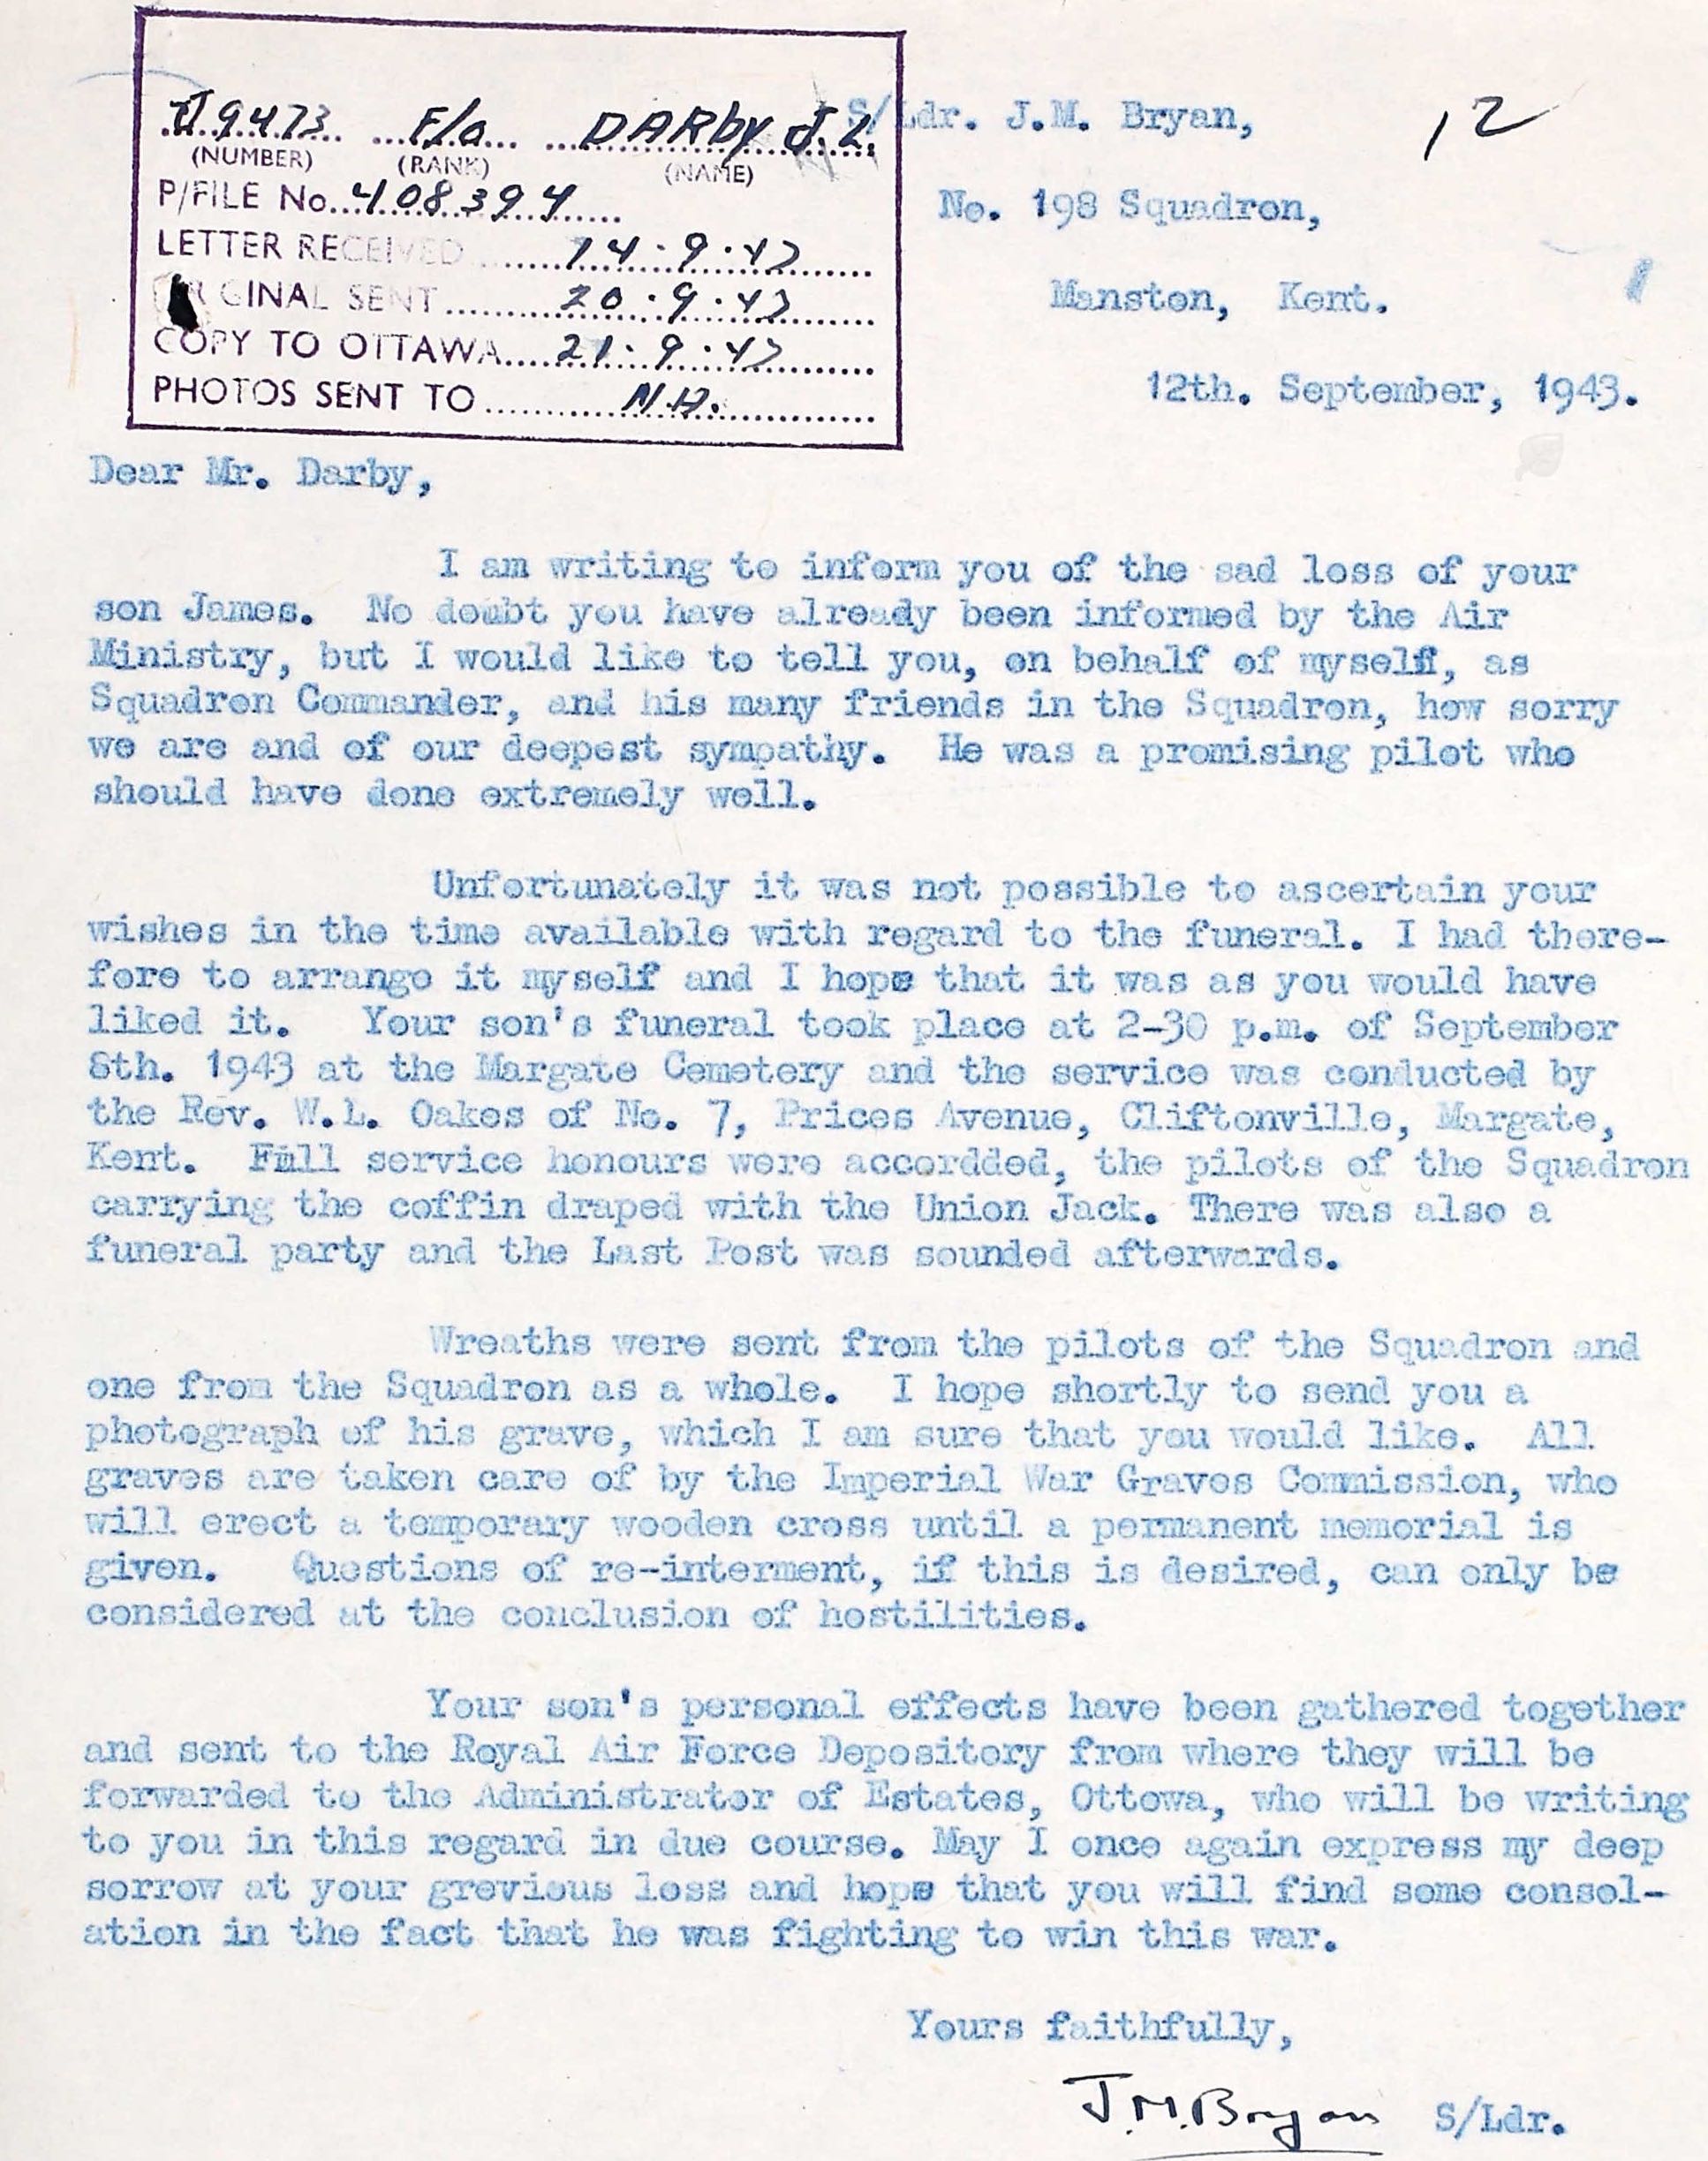 J9473 F/O DARBY J.L.
(NUMBER) (RANK) (NAME)
P/FILE No. 408394
LETTER RECEIVED 14.9.43
ORIGINAL SENT 20.9.43
COPY TO OTTAWA 21.9.43
PHOTOS SENT TO N.A.
S/Ldr. J.M. Bryan,
12
No. 198 Squadron,
Manston, Kent.
12th. September, 1943.
Dear Mr. Darby,
I am writing to inform you of the sad loss of your
son James. No doubt you have already been informed by the Air
Ministry, but I would like to tell you, on behalf of myself, as
Squadron Commander, and his many friends in the Squadron, how sorry
we are and of our deepest sympathy. He was a promising pilot who
should have done extremely well.
Unfortunately it was not possible to ascertain your
wishes in the time available with regard to the funeral. I had there-
fore to arrange it myself and I hope that it was as you would have
liked it. Your son's funeral took place at 2-30 p.m. of September
8th. 1943 at the Margate Cemetery and the service was conducted by
the Rev. W.L. Oakes of No. 7, Prices Avenue, Cliftonville, Margate,
Kent. Full service honours were accordded, the pilots of the Squadron
carrying the coffin draped with the Union Jack. There was also a
funeral party and the Last Post was sounded afterwards.
Wreaths were sent from the pilots of the Squadron and
one from the Squadron as a whole. I hope shortly to send you a
photograph of his grave, which I am sure that you would like. All
graves are taken care of by the Imperial War Graves Commission, who
will erect a temporary wooden cross until a permanent memorial is
given. Questions of re-interment, if this is desired, can only be
considered at the conclusion of hostilities.
Your son's personal effects have been gathered together
and sent to the Royal Air Force Depository from where they will be
forwarded to the Administrator of Estates, Ottowa, who will be writing
to you in this regard in due course. May I once again express my deep
sorrow at your grevious loss and hope that you will find some consol-
ation in the fact that he was fighting to win this war.
Yours faithfully,
J.M.Bryan S/Ldr.